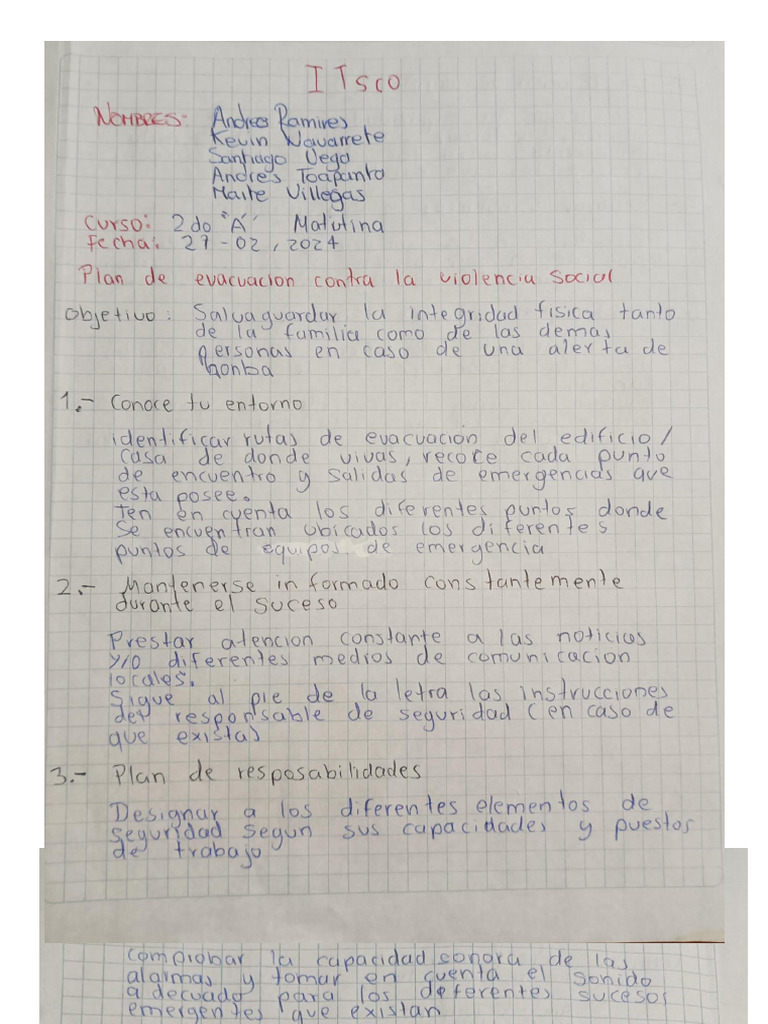 ITsco
Nombres: Andres Ramires
Kevin Navarrete
Santiago Vega
Andres Toapanta
Maite Villegas
Curso: 2do "A" Matutina
Fecha: 27-02, 2024
Plan de evacuacion contra la violencia social
Objetivo: Salvaguardar la integridad fisica tanto
de la familia como de las demas
personas en caso de una alerta de
bonba
1.- Conoce tu entorno
identificar rutas de evacuación del edificio/
casa de donde vivas, recoce cada punto
de encuentro y salidas de emergencias que
esta posee.
Ten en cuenta los diferentes puntos donde
se encuentran ubicados los diferentes
puntos de equipos de emergencia
2.- Mantenerse informado constantemente
durante el suceso
Prestar atencion constante a las noticias
y/o diferentes medios de comunicacion
locales.
Sigue al pie de la letra las instrucciones
del responsable de seguridad (en caso de
que exista)
3.- Plan de resposabilidades
Designar a los diferentes elementos de
seguridad segun sus capacidades y puestos
de trabajo
comprobar la capacidad sonora de las
alarmas y tomar en cuenta el sonido
adecuado para los deferentes sucesos
emergentes que existan